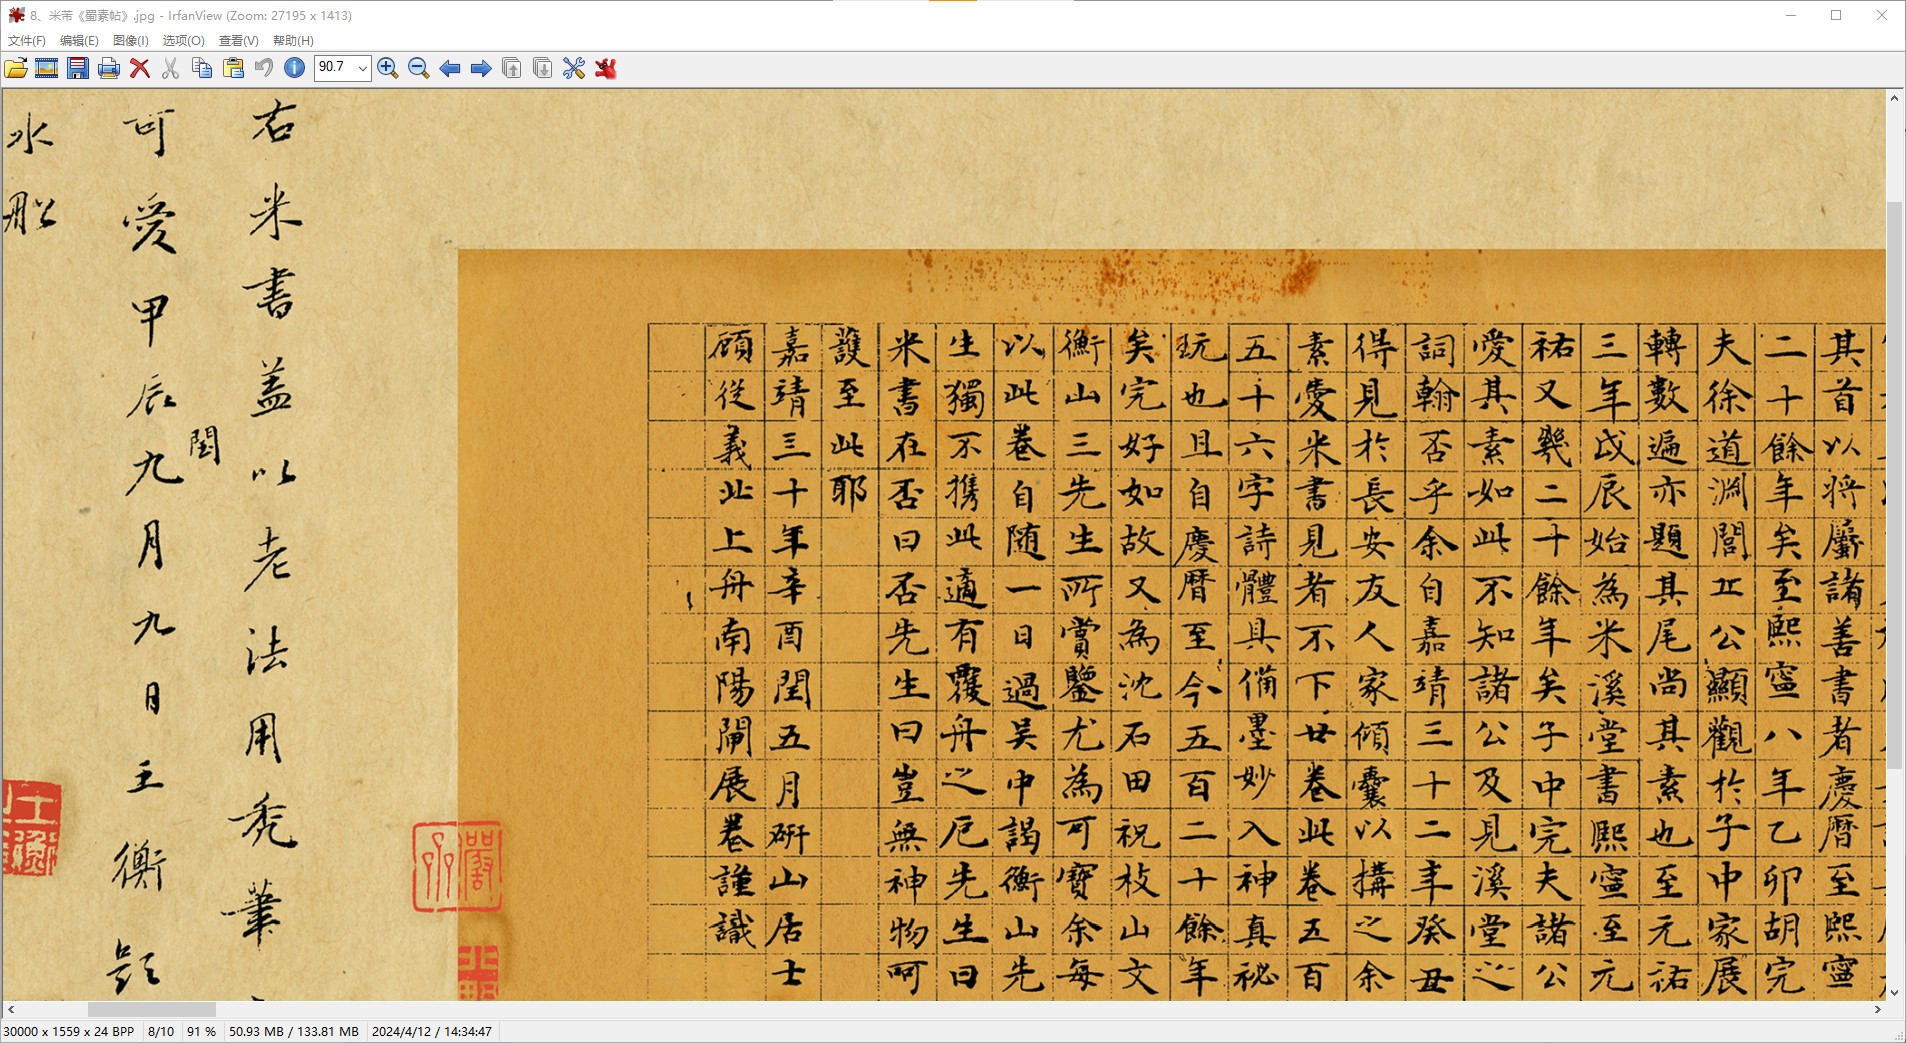 8、米芾《蜀素帖》.jpg - IrfanView (Zoom: 27195 x 1413)
文件(F) 编辑(E) 图像(I) 选项(O) 查看(V) 帮助(H)
90.7
其首以將屬諸善書者慶曆至熙寧
二十餘年矣至熙寧八年乙卯胡完
夫徐道淵閭丘公顯觀於子中家展
轉數遍亦題其尾尚其素也至元祐
三年戊辰始為米溪堂書熙寧至元
祐又幾二十餘年矣子中完夫諸公
愛其素如此不知諸公及見溪堂之
詞翰否乎余自嘉靖三十二年癸丑
得見於長安友人家傾囊以搆之余
素愛米書見者不下廿卷此卷五百
五十六字詩體具備墨妙入神真秘
玩也且自慶曆至今五百二十餘年
矣完好如故又為沈石田祝枝山文
衡山三先生所賞鑒尤為可寶余每
以此卷自隨一日過吳中謁衡山先
生獨不携此適有覆舟之厄先生曰
米書在否曰否先生曰豈無神物呵
護至此耶
嘉靖三十年辛酉閏五月研山居士
顧從義北上舟南陽閘展卷謹識
右米書蓋以老法用禿筆
可愛甲辰閏九月九日王衡題
水
30000 x 1559 x 24 BPP 8/10 91 % 50.93 MB / 133.81 MB 2024/4/12 / 14:34:47